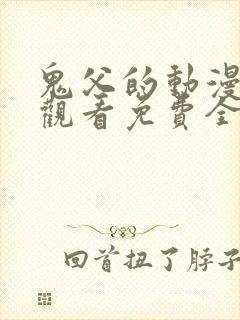 鬼父的動漫
觀看免費全
回首扭了脖子